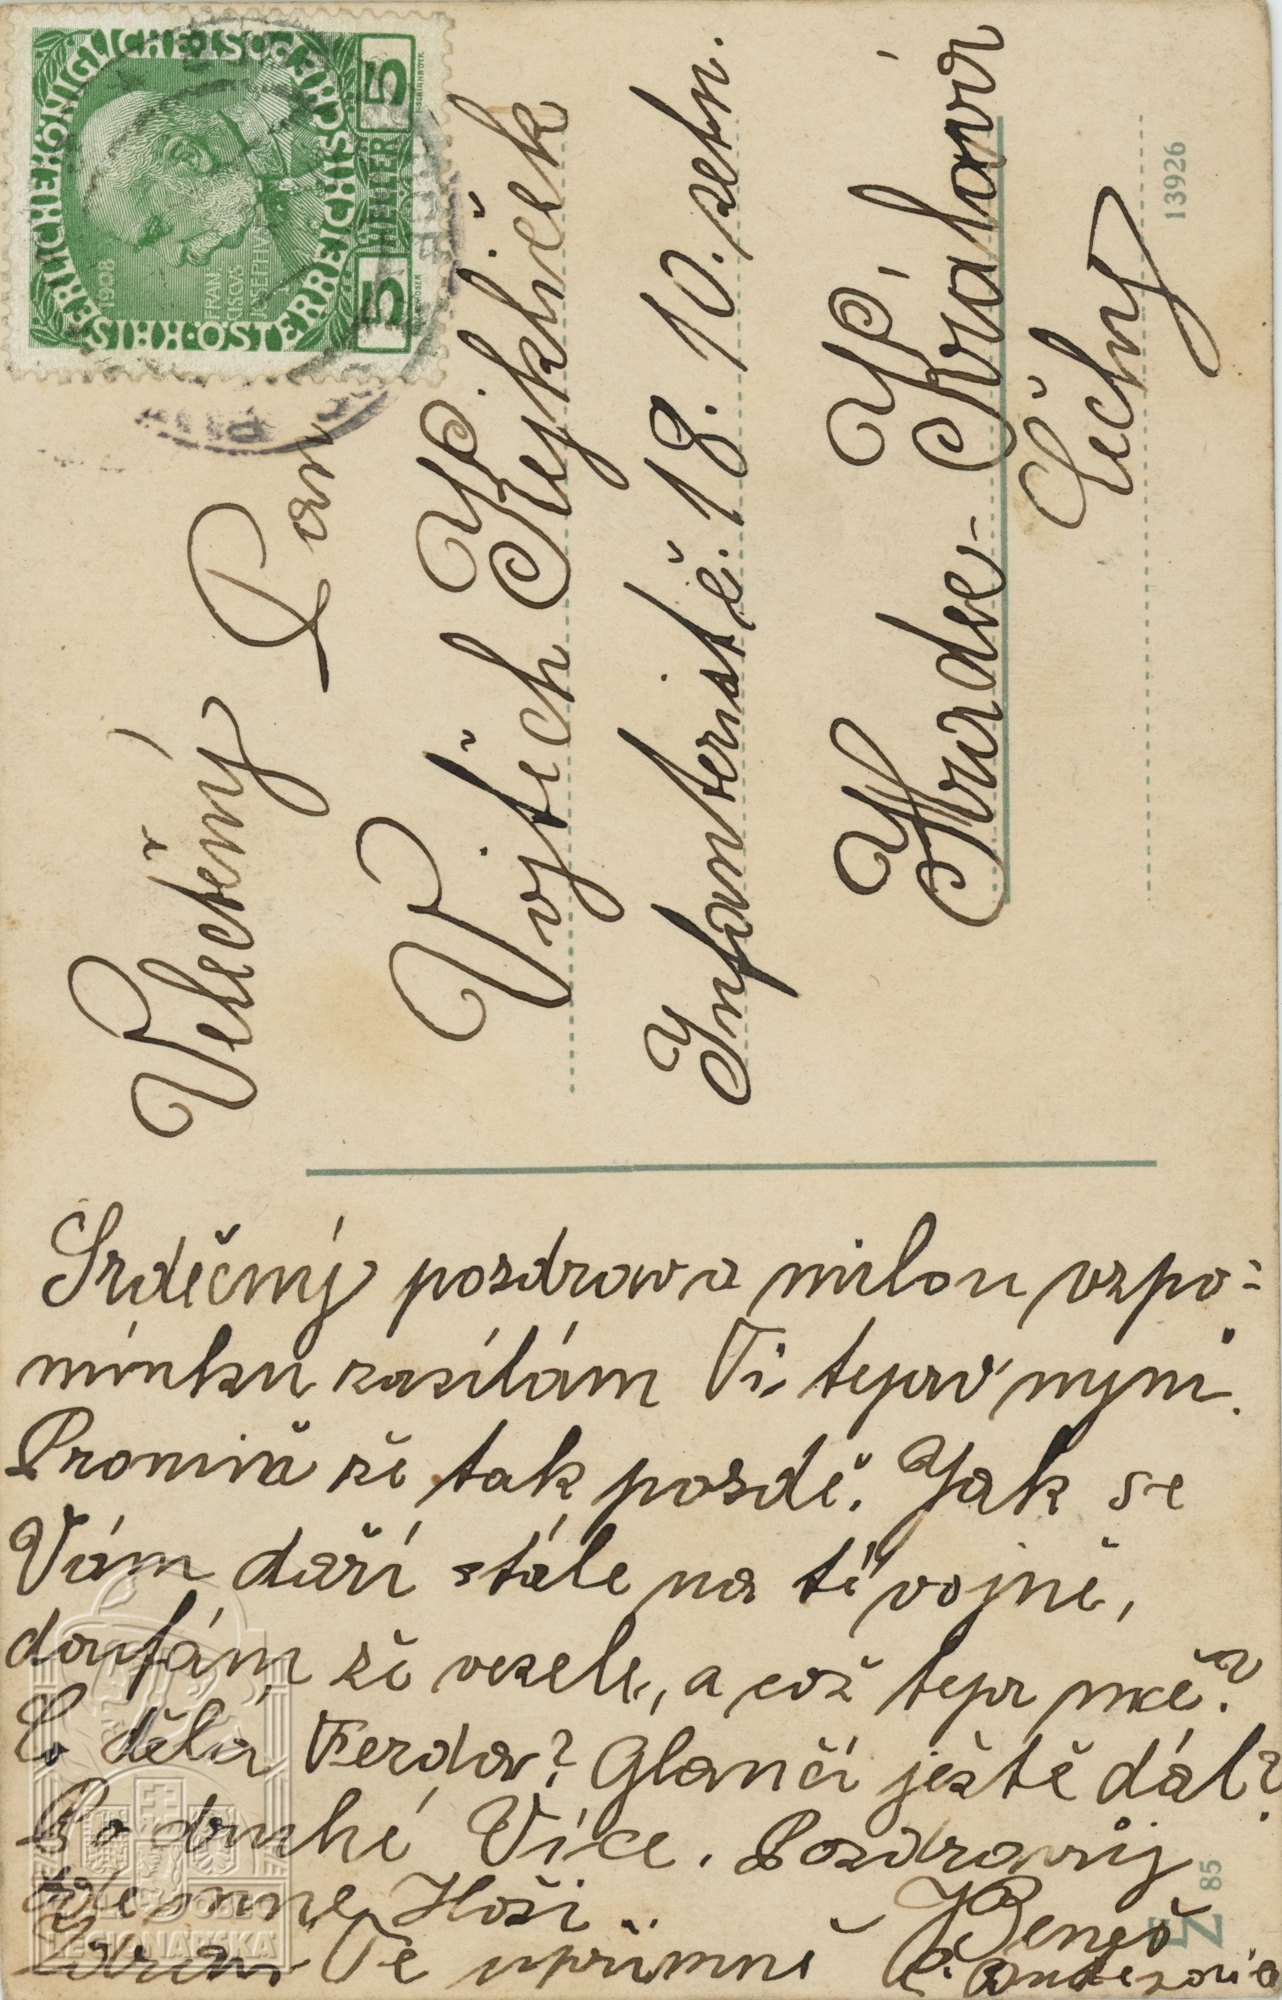 KAIS. KÖNIGLICHE ÖSTERREICHISCHE POST
1908
FRAN
CISCVS
IOSEPHVS I
5 HELLER 5
Velectěný
Pan
Vojtěch Kejklíček
Infanterist č. 18. 10. setn.
Hradec-Králové
Čechy
13926
Srdečný pozdrav a milou vzpo-
mínku zasílám Ti teprv nyní.
Promiň že tak pozdě. Jak se
Vám daří stále na té vojně,
doufám že vesele, a což tepr mě?
Co dělá Ferda? Glančí ještě dál?
Po druhé Více. Pozdravuj
Hoši.
Zdraví Tě upřímně
Beneš
85
OBEC
LEGIONÁŘSKÁ